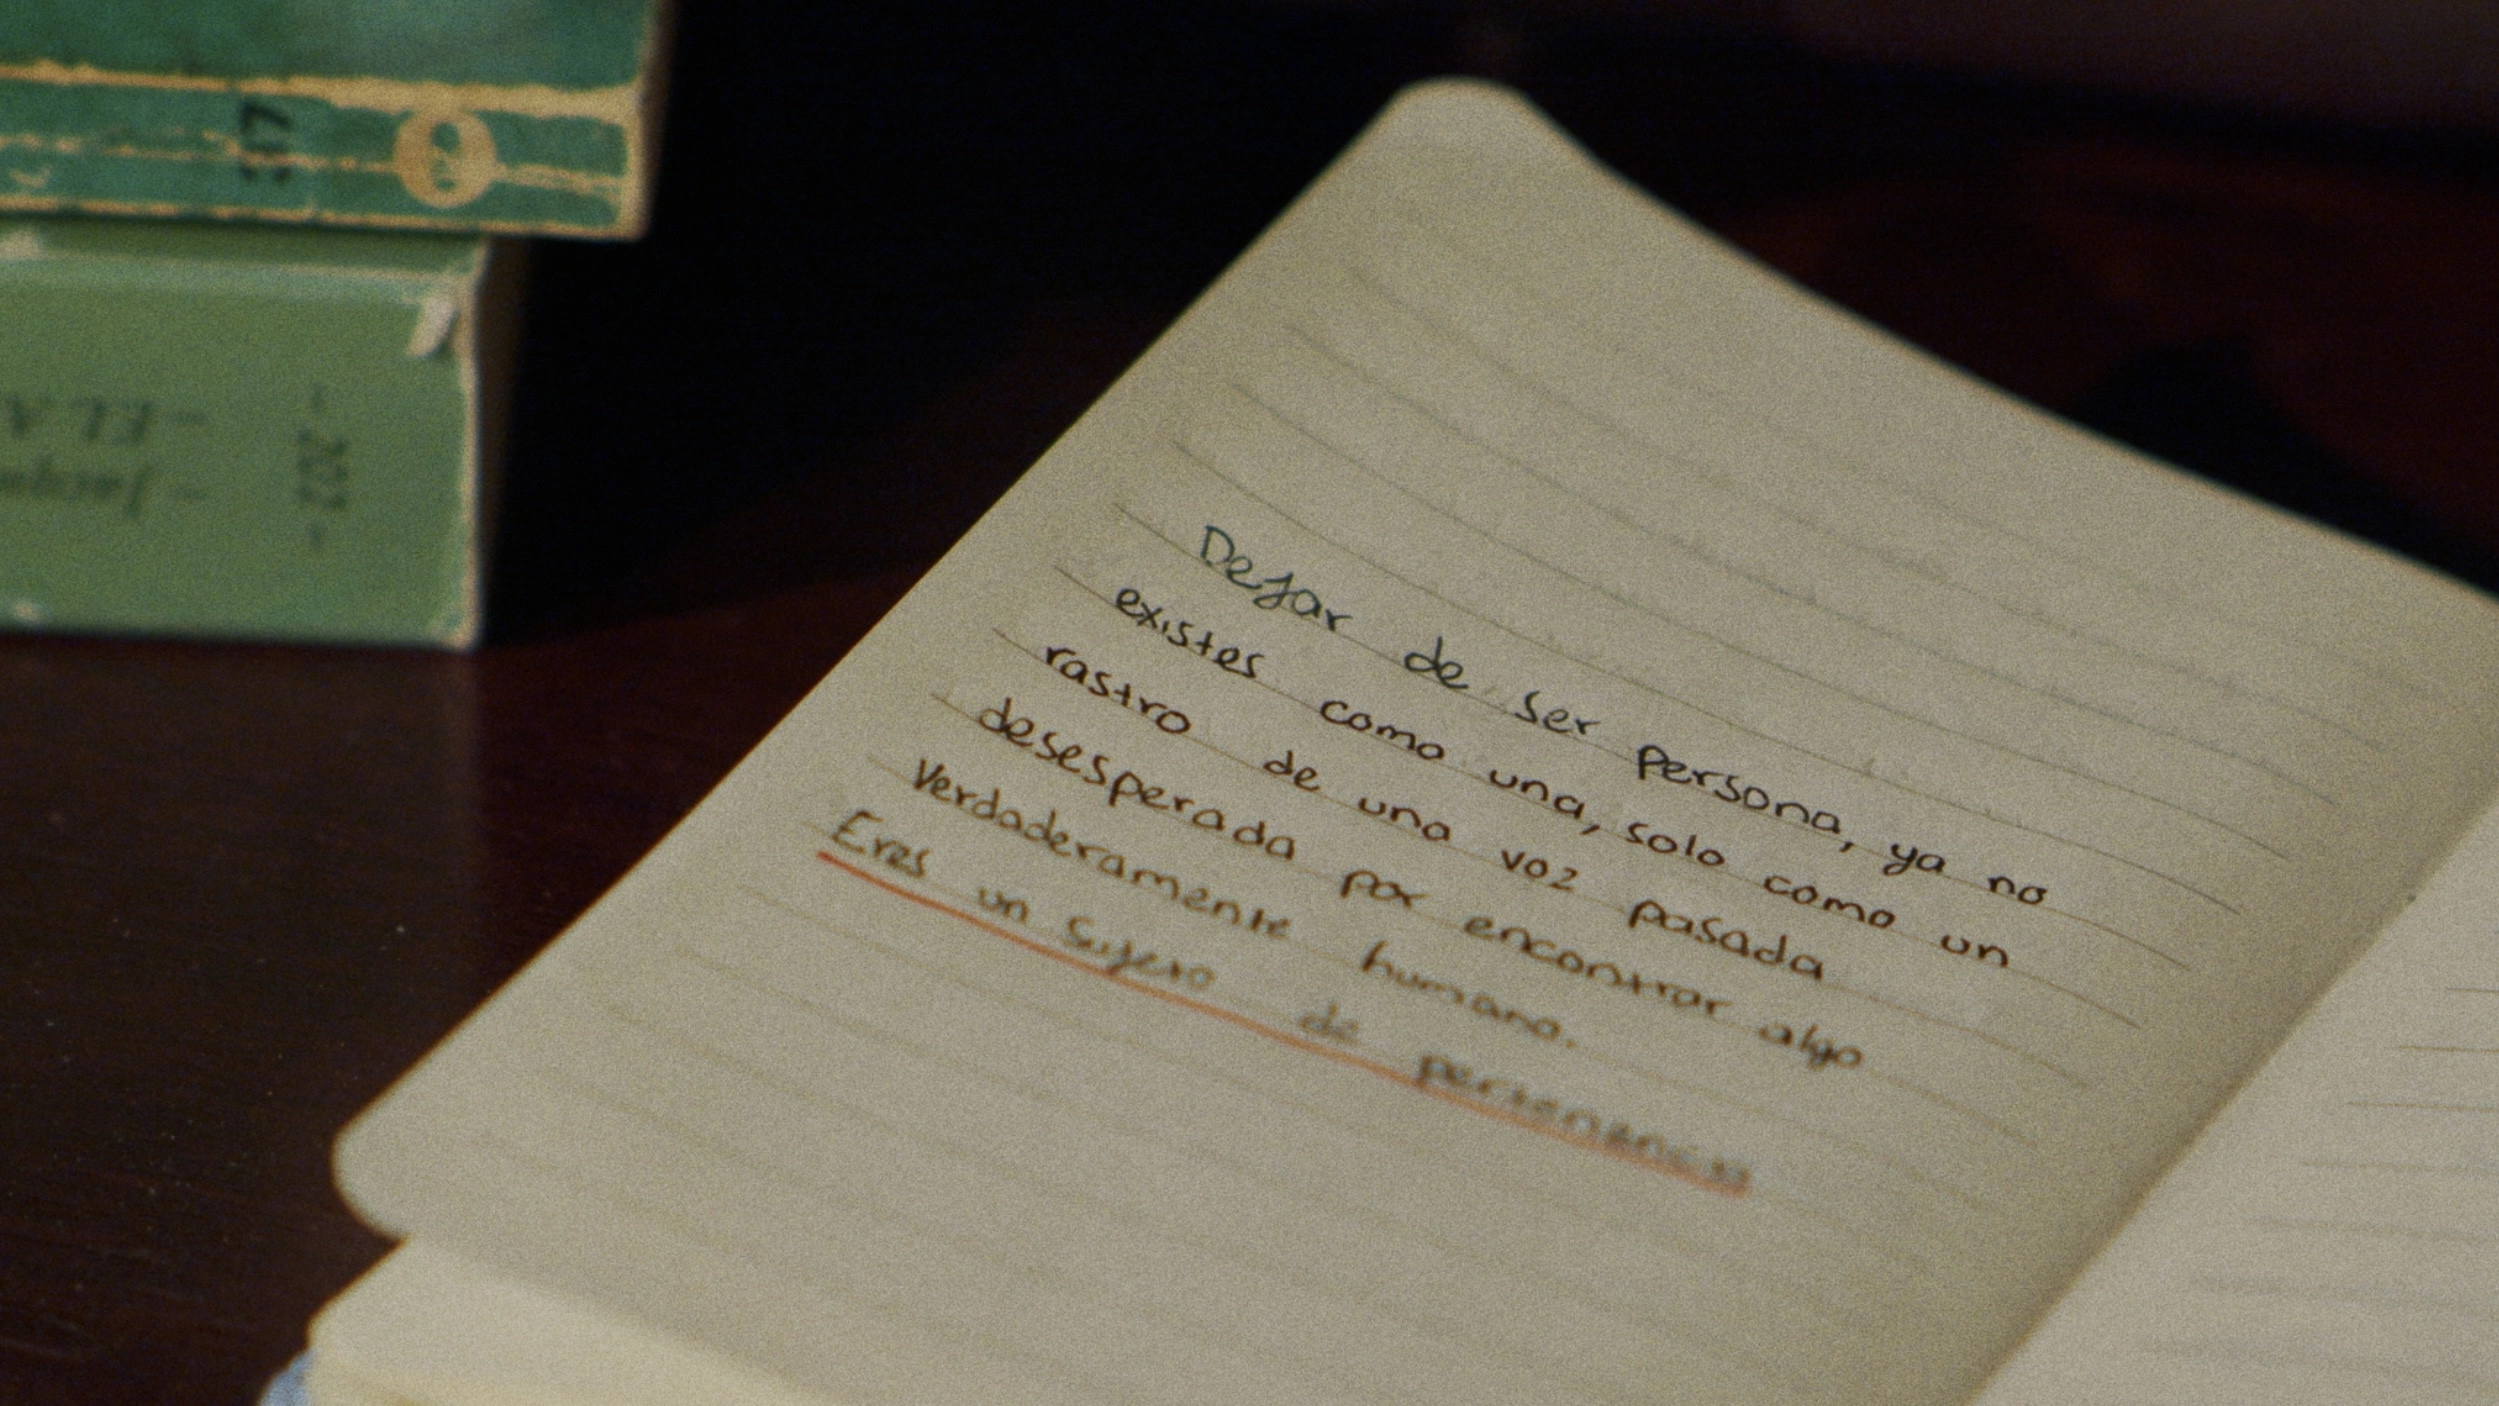 317
- 202 -
- EL A
- Jacqu
Dejar de ser persona, ya no
existes como una, solo como un
rastro de una voz pasada
desesperada por encontrar algo
verdaderamente humano.
Eres un sujeto de pertenencia